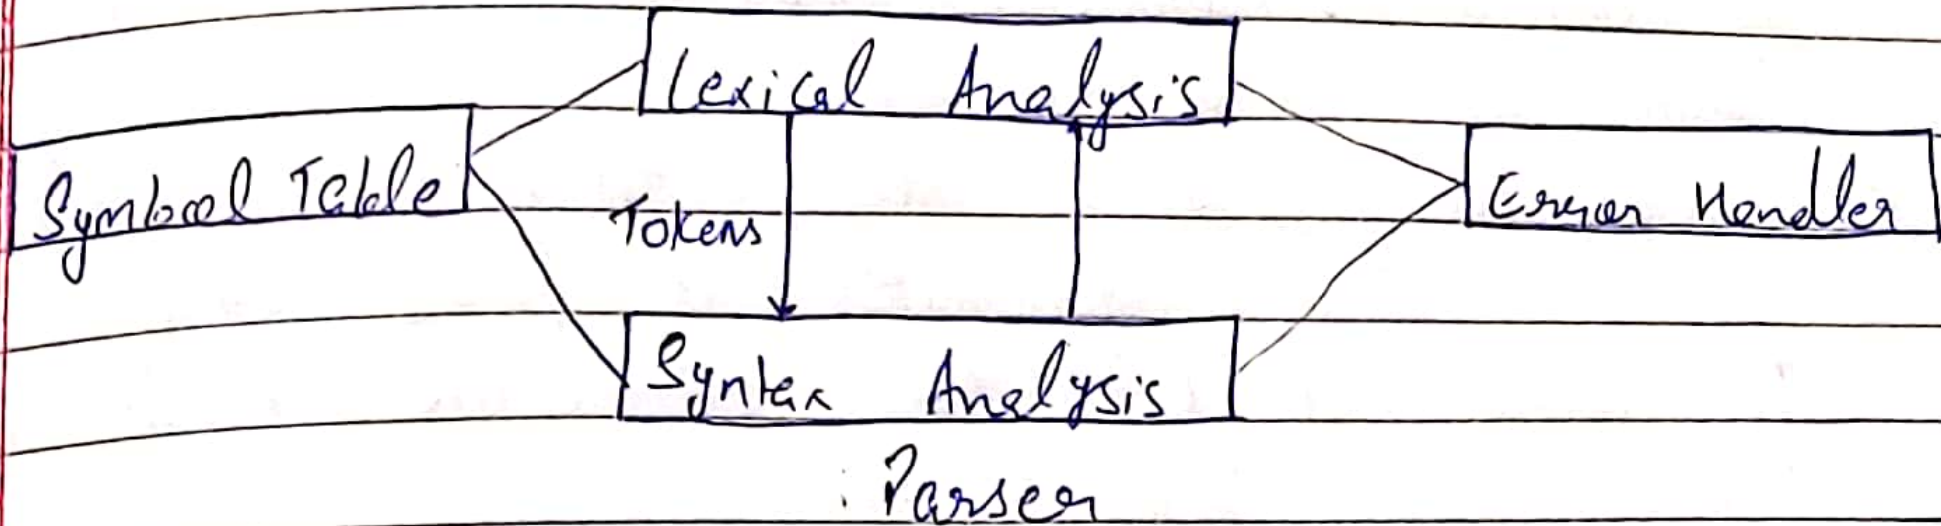 Lexical Analysis
Symbool Table
Error Handler
Tokens
Syntax Analysis
Parser